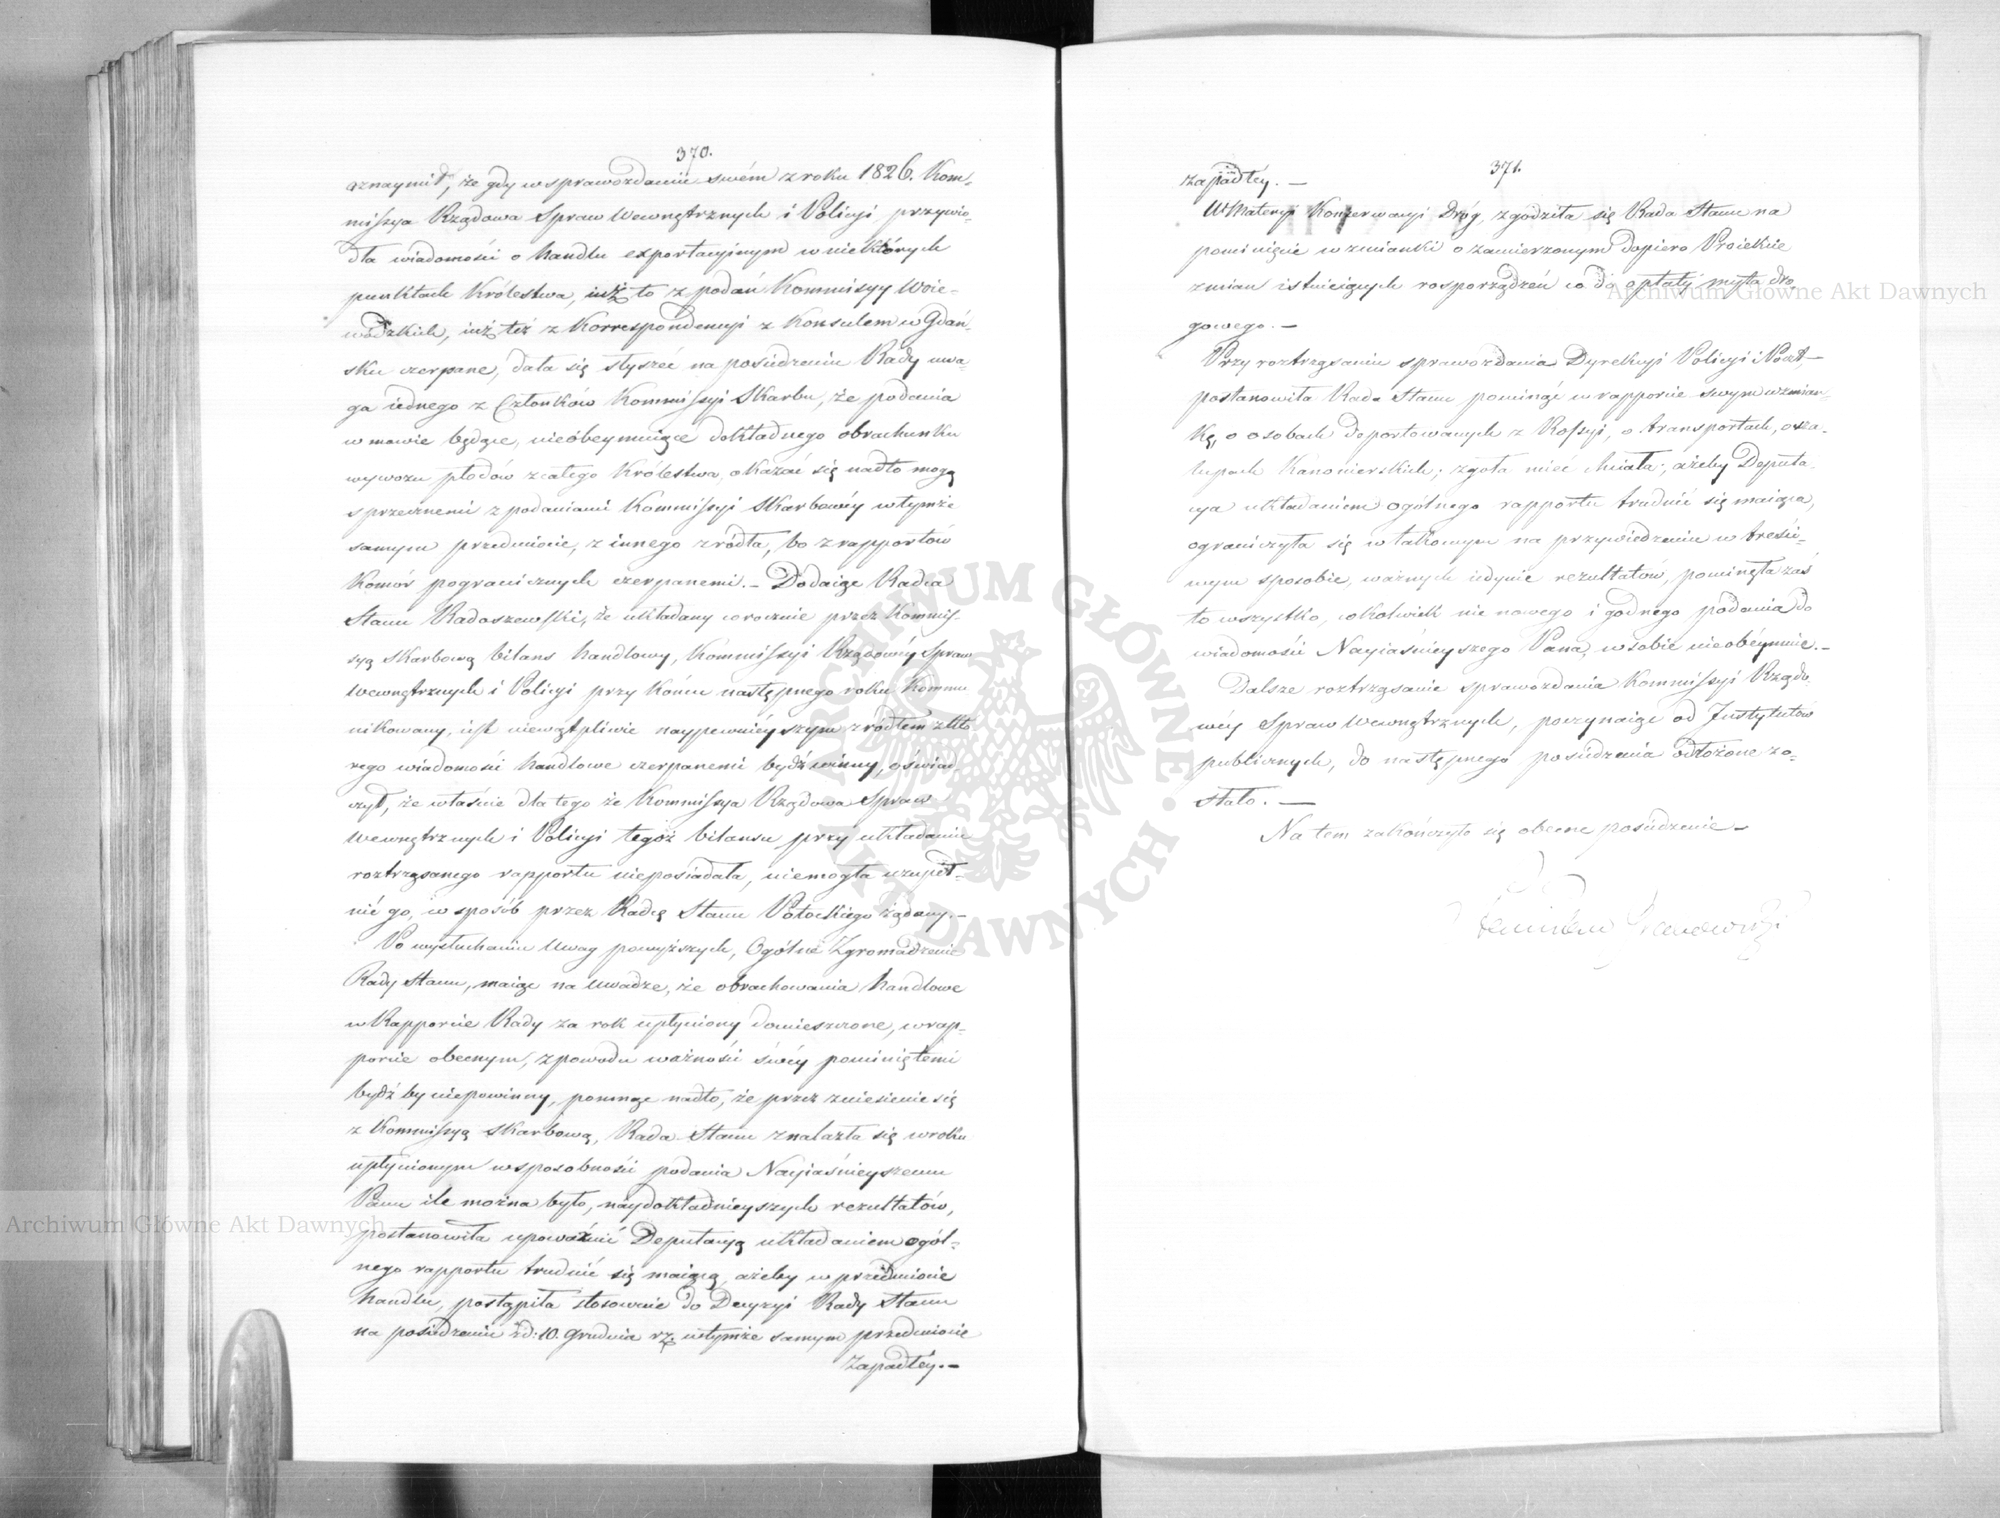 370.
oznaymił, że gdy w sprawozdaniu swém z roku 1826. Kom-
missya Rządowa Spraw Wewnętrznych i Policyi przywio-
dła wiadomości o handlu exportacyinym w niektórych
punktach Królestwa, iuż to z podań Kommissyy Woie-
wódzkich, iuż też z Korrespondencyi z Konsulem w Gdań-
sku czerpane, dała się słyszeć na posiedzeniu Rady uwa-
ga iednego z Członków Kommissyi Skarbu, że podania
w mowie będące, nieobeymuiące dokładnego obrachunku
wywozu płodów z całego Królestwa, okazać się nadto mogą
sprzecznemi z podaniami Kommissyi Skarbowéy w tymże
samym przedmiocie, z innego źródła, bo z rapportów
Komór pogranicznych czerpanemi. – Dodaiąc Radca
Stanu Radoszewski, że układany corocznie przez Kommis-
syą Skarbową bilans handlowy, Kommissyi Rządowéy Spraw
Wewnętrznych i Policyi przy końcu następnego roku kommu
nikowany, iest niewątpliwie naypewnieyszym źródłem z któ
rego wiadomości handlowe czerpanemi bydź winny, oświad
czył, że właśnie dla tego że Kommissya Rządowa Spraw
Wewnętrznych i Policyi tegoż bilansu przy układaniu
roztrząsanego rapportu nieposiadała, niemogła uzupeł-
nić go, w sposób przez Radcę Stanu Potockiego żądany. –
Po wysłuchaniu Uwag powyższych, Ogólne Zgromadzenie
Rady Stanu, maiąc na uwadze, że obrachowania handlowe
w Rapporcie Rady za rok upłyniony domieszczone, w rap-
porcie obecnym, z powodu ważności swéy pominiętemi
bydź by niepowinny, pomnąc nadto, że przez zniesienie się
z Kommissyą Skarbową, Rada Stanu znalazła się w roku
upłynionym w sposobności podania Nayiaśnieyszemu
Panu ile można było, naydokładnieyszych rezultatów,
postanowiła upoważnić Deputacyą układaniem ogól-
nego rapportu trudnić się maiącą, ażeby w przedmiocie
handlu, postąpiła stosownie do Decyzyi Rady Stanu
na posiedzeniu zd: 10. Grudnia rz. w tymże samym przedmiocie
zapadłéy. –
371.
zapadłéy. –
W Materyi Konserwacyi Dróg, zgodziła się Rada Stanu na
pominięcie wzmianki o zamierzonym dopiero Proiekcie
zmian istnieiących rosporządzeń co do opłaty myta dro
gowego. –
Przy roztrząsaniu sprawozdania Dyrekcyi Policyi i Poczt, –
postanowiła Rada Stanu pominąć w rapporcie swym wzmian-
kę, o osobach deportowanych z Rossyi, o transportach, o sza-
lupach Kanonierskich; zgoła mieć chciała, ażeby Deputa-
cya układaniem ogólnego rapportu trudnić się maiąca,
ograniczyła się w takowym na przywiedzeniu w treści-
wym sposobie, ważnych iedynie rezultatów, pominęła zaś
to wszystko, cokolwiek nic nowego i godnego podania do
wiadomości Nayiaśnieyszego Pana, w sobie nieobéymuie. –
Dalsze roztrząsanie sprawozdania Kommissyi Rządo-
wéy Spraw Wewnętrznych, poczynaiąc od Instytutów
publicznych, do następnego posiedzenia odłożone zo-
stało. –
Na tem zakończyło się obecne posiedzenie –
ARCHIWUM GŁÓWNE AKT DAWNYCH
Archiwum Główne Akt Dawnych
Archiwum Główne Akt Dawnych